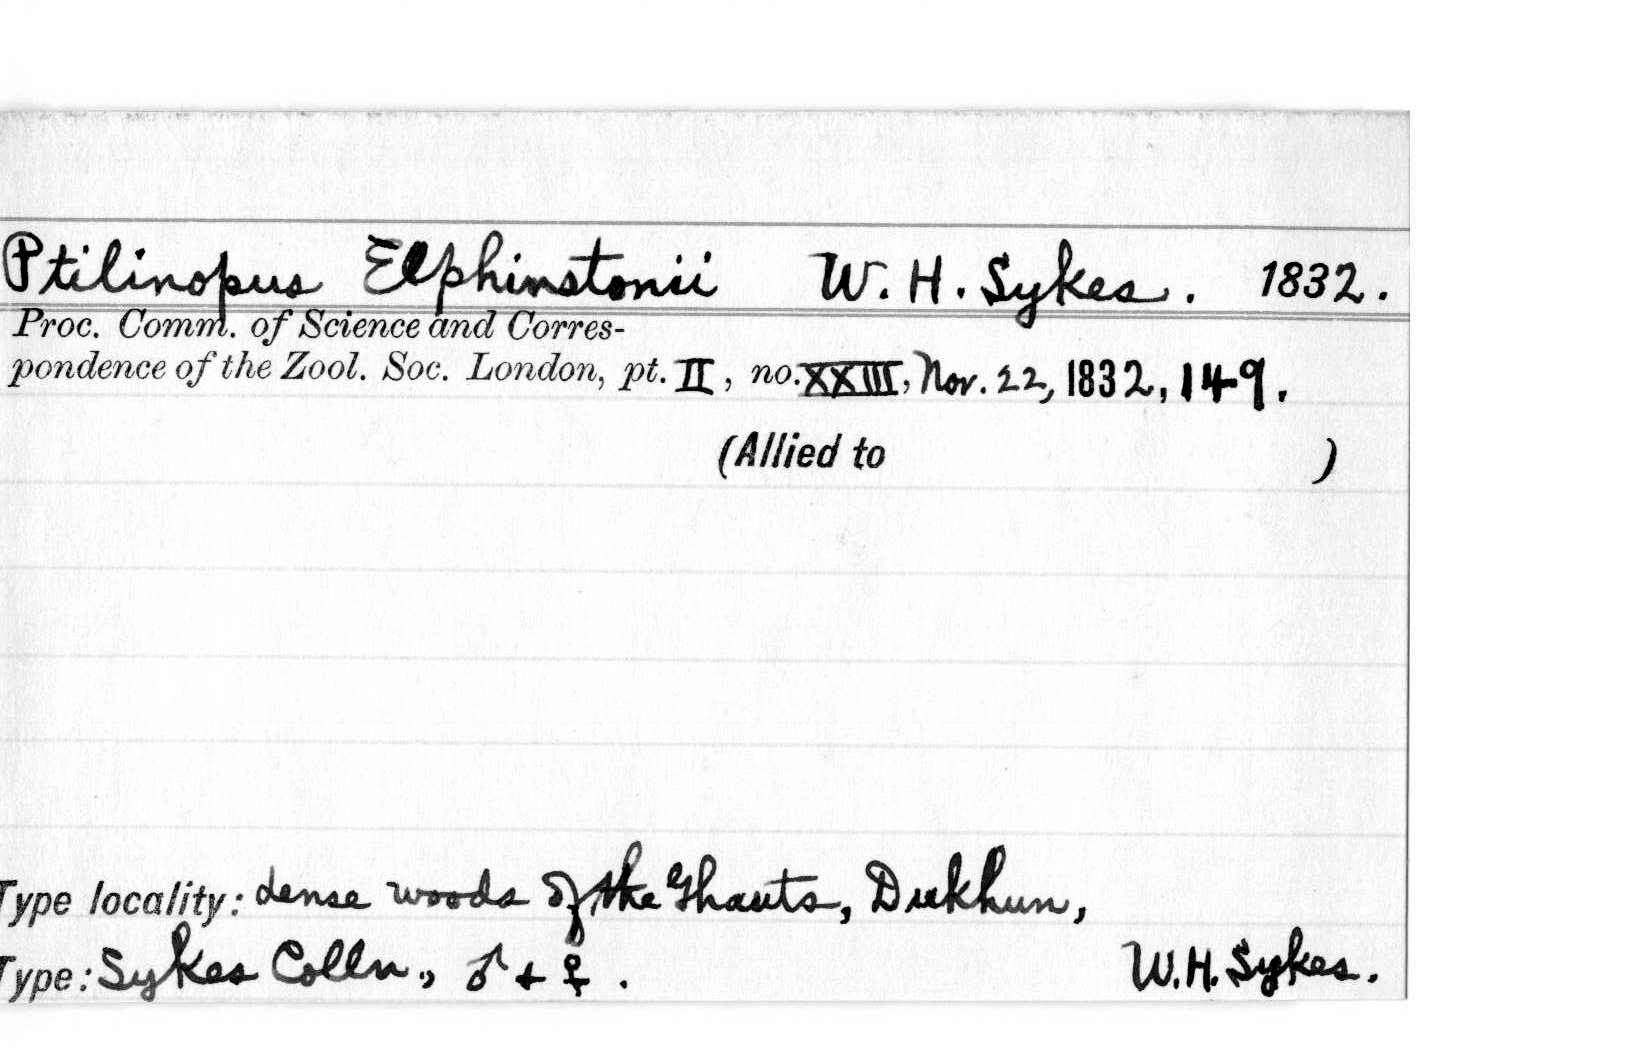 Ptilinopus Elphinstonii W. H. Sykes. 1832.
Proc. Comm. of Science and Corres-
pondence of the Zool. Soc. London, pt. II, no. XXIII, Nov. 22, 1832, 149.
(Allied to )
Type locality: dense woods of the Ghauts, Dukhun,
Type: Sykes Colln., ♂ + ♀. W.H. Sykes.